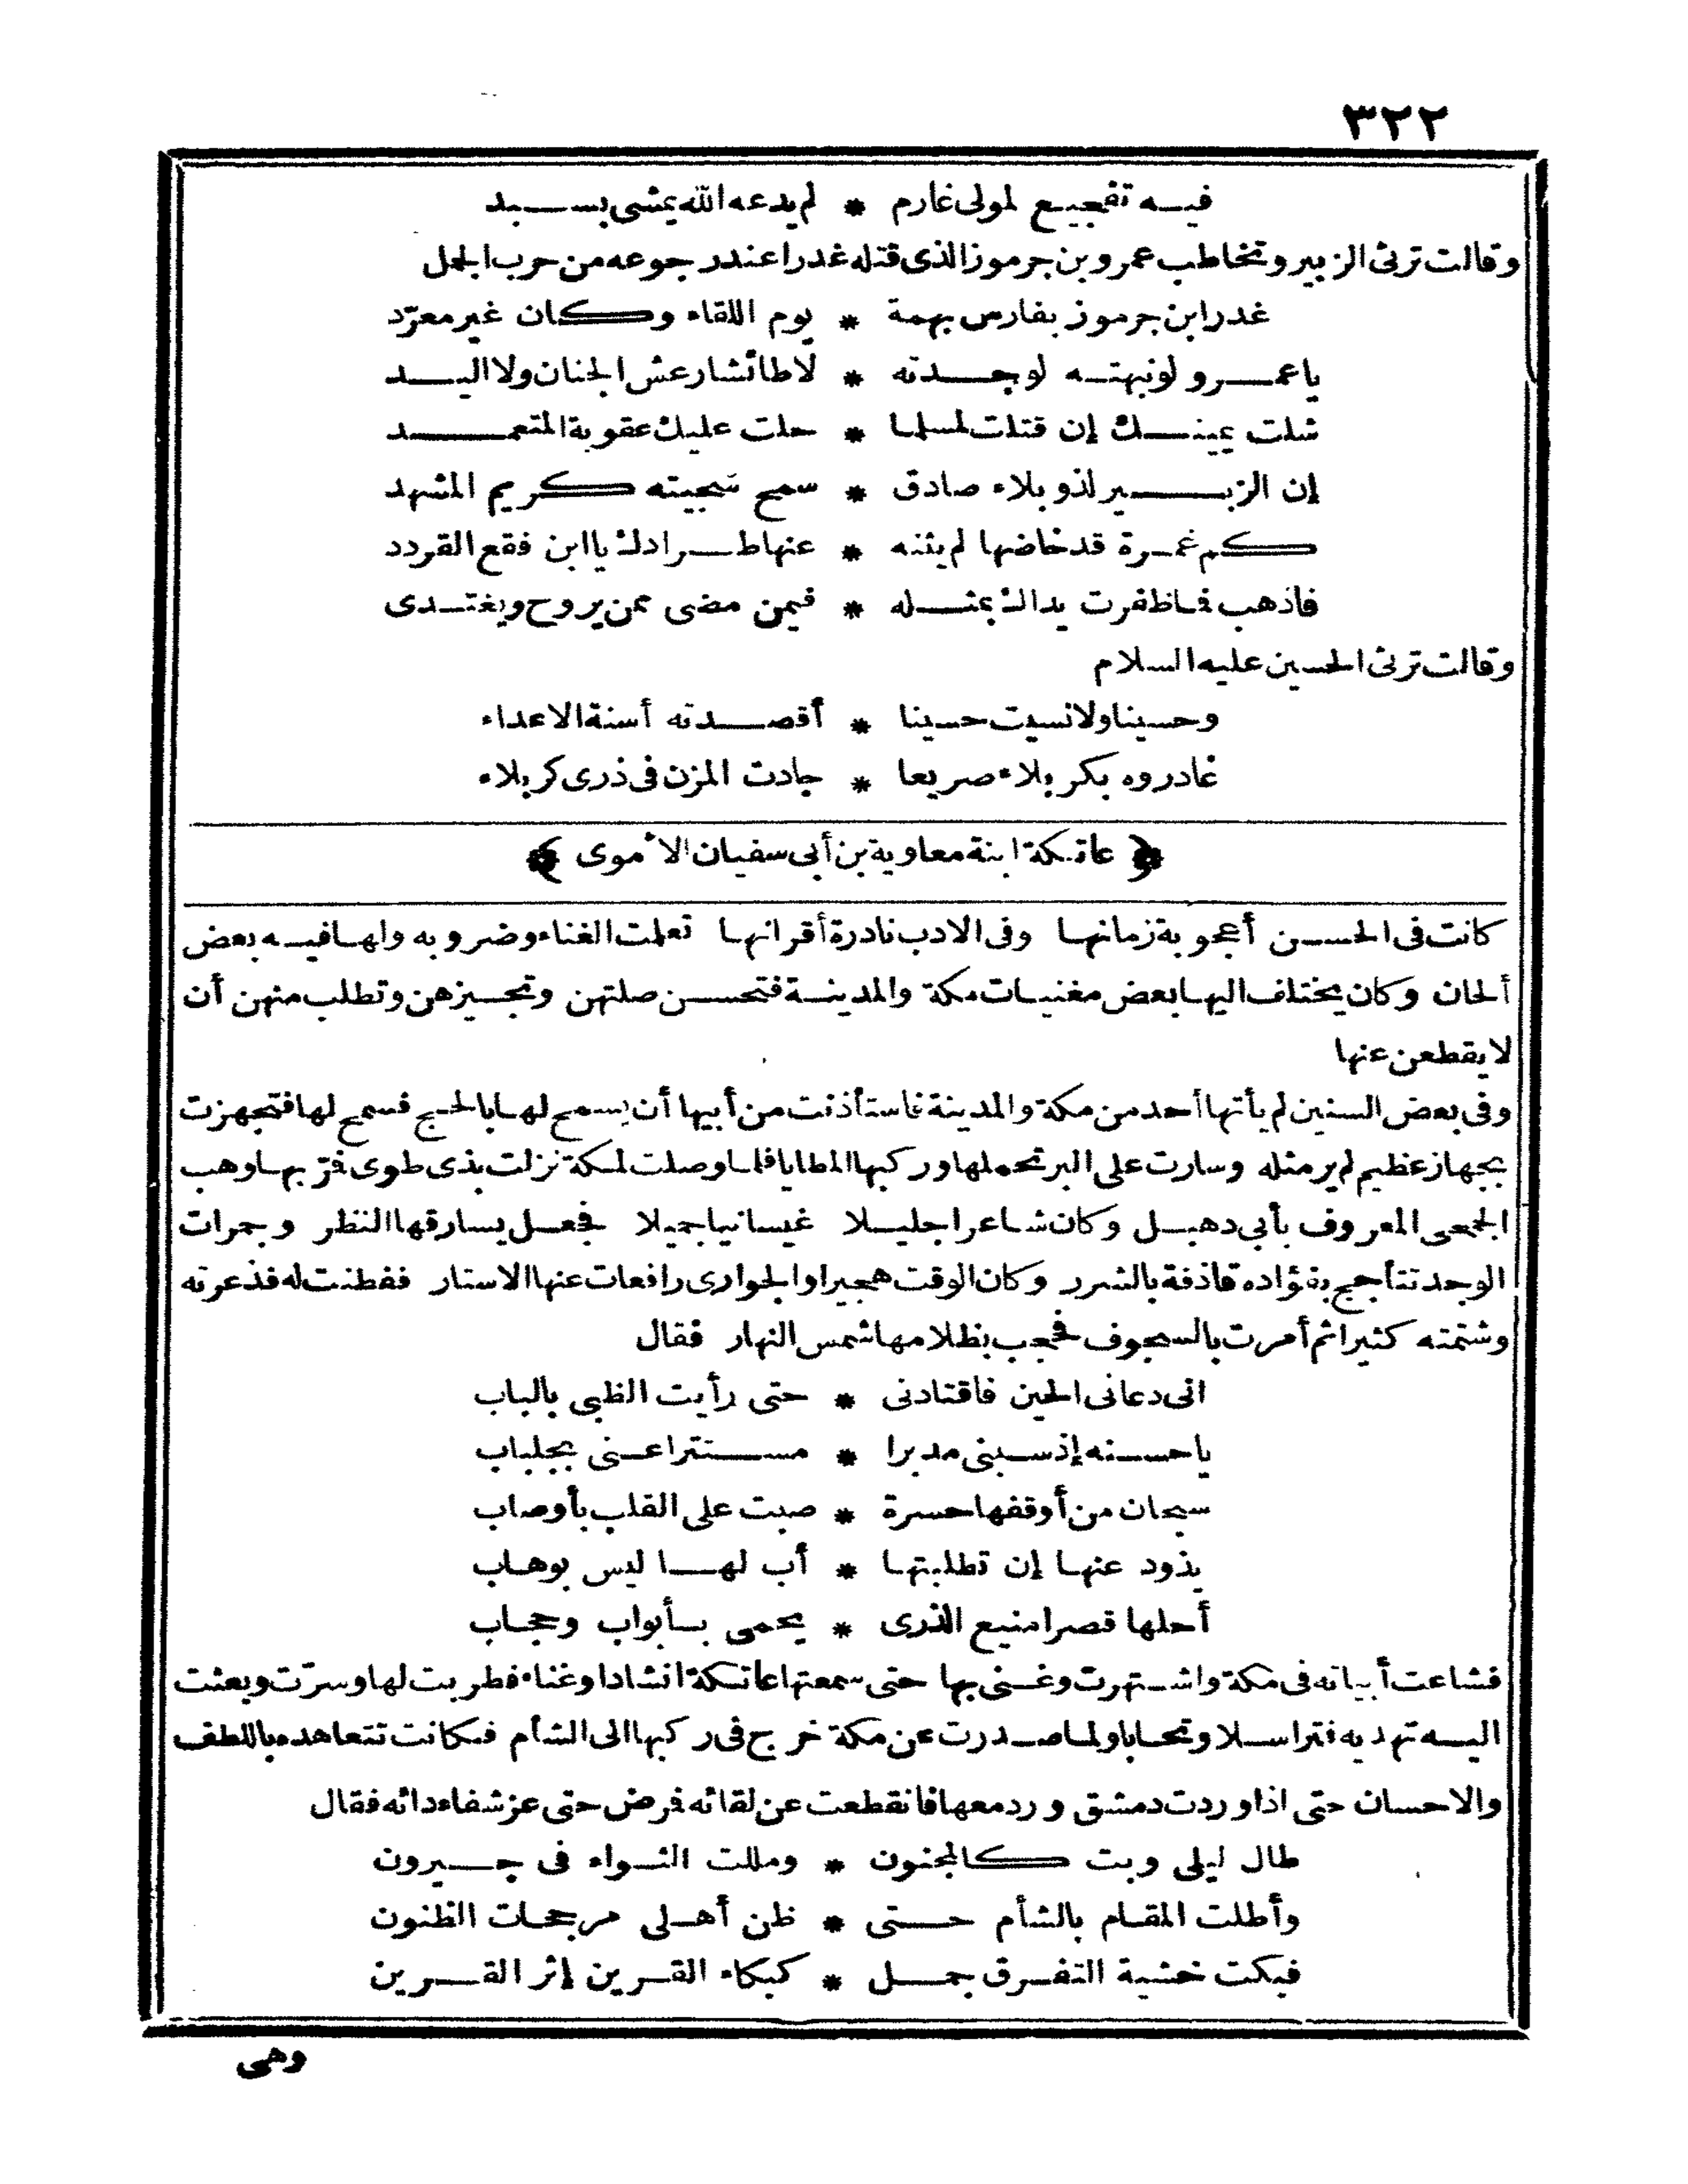 ٣٢٢
فيه تفجيع لمولى غارم * لم يدعه الله يمشى بسبد
وقالت ترثى الزبير وتخاطب عمرو بن جرموز الذى قتله غدرا عند رجوعه من حرب الجمل
غدر ابن جرموز بفارس بهمة * يوم اللقاء وكان غير معرّد
يا عمرو لو نبهته لوجدته * لا طائشا رعش الجنان ولا اليد
شلت يمينك إن قتلت لمسلما * حلت عليك عقوبة المتعمد
إن الزبير لذو بلاء صادق * سمح سجيته كريم المشهد
كم غمرة قد خاضها لم يثنه * عنها طرادك يا ابن فقع القردد
فاذهب فما ظفرت يداك بمثله * فيمن مضى ممن يروح ويغتدى
وقالت ترثى الحسين عليه السلام
وحسينا ولا نسيت حسينا * أقصدته أسنة الاعداء
غادروه بكربلاء صريعا * جادت المزن فى ذرى كربلاء
﴿ عاتكة ابنة معاوية بن أبى سفيان الأموى ﴾
كانت فى الحسن أعجوبة زمانها وفى الادب نادرة أقرانها تعلمت الغناء وضروبه ولها فيه بعض
ألحان وكان يختلف اليها بعض مغنيات مكة والمدينة فتحسن صلتهن وتجيزهن وتطلب منهن أن
لا يقطعن عنها
وفى بعض السنين لم يأتها أحد من مكة والمدينة فاستأذنت من أبيها أن يسمح لها بالحج فسمح لها فتجهزت
بجهاز عظيم لم ير مثله وسارت على البر تحملها وركبها المطايا فلما وصلت لمكة نزلت بذى طوى فمرّ بها وهب
الجمعى المعروف بأبى دهبل وكان شاعرا جليلا غيسانيا جميلا فجعل يسارقها النظر وجمرات
الوجد تتأجج بفؤاده قاذفة بالشرر وكان الوقت هجيرا والجوارى رافعات عنها الاستار ففطنت له فذعرته
وشتمته كثيرا ثم أمرت بالسجوف فحجب بظلامها شمس النهار فقال
انى دعانى الحين فاقتادنى * حتى رأيت الظبى بالباب
يا حسنه إذ سبنى مدبرا * مستترا عنى بجلباب
سبحان من أوقفها حسرة * صبت على القلب بأوصاب
يذود عنها إن تطلبتها * أب لها ليس بوهاب
أحلها قصرا منيع الذرى * يحمى بأبواب وحجاب
فشاعت أبياته فى مكة واشتهرت وغنى بها حتى سمعتها عاتكة انشادا وغناء فطربت لها وسرّت وبعثت
اليه تهديه فتراسلا وتحابا ولما صدرت عن مكة خرج فى ركبها الى الشأم فكانت تتعاهده باللطف
والاحسان حتى اذا وردت دمشق ورد معها فانقطعت عن لقائه فمرض حتى عز شفاء دائه فقال
طال ليلى وبت كالمجنون * ومللت الثواء فى جيرون
وأطلت المقام بالشأم حتى * ظن أهلى مرجحات الظنون
فبكت خشية التفرق جمل * كبكاء القرين إثر القرين
وهى